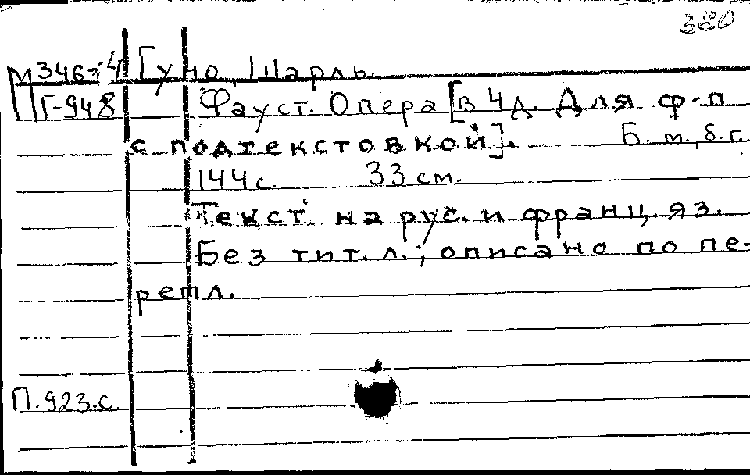 380
М346-4 Гуно, Шарль.
Г-948 Фауст. Опера [в 4 д. Для ф-п
с подтекстовкой]. Б. м., б. г.
144 с. 33 см.
Текст на рус. и франц. яз.
Без тит. л.; описано по пе-
репл.
П.923.с.